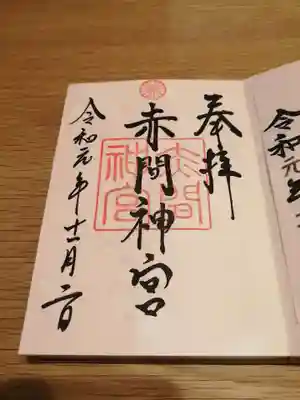 奉拝
赤間神宮
赤間神宮
令和元年十一月二日
令和元